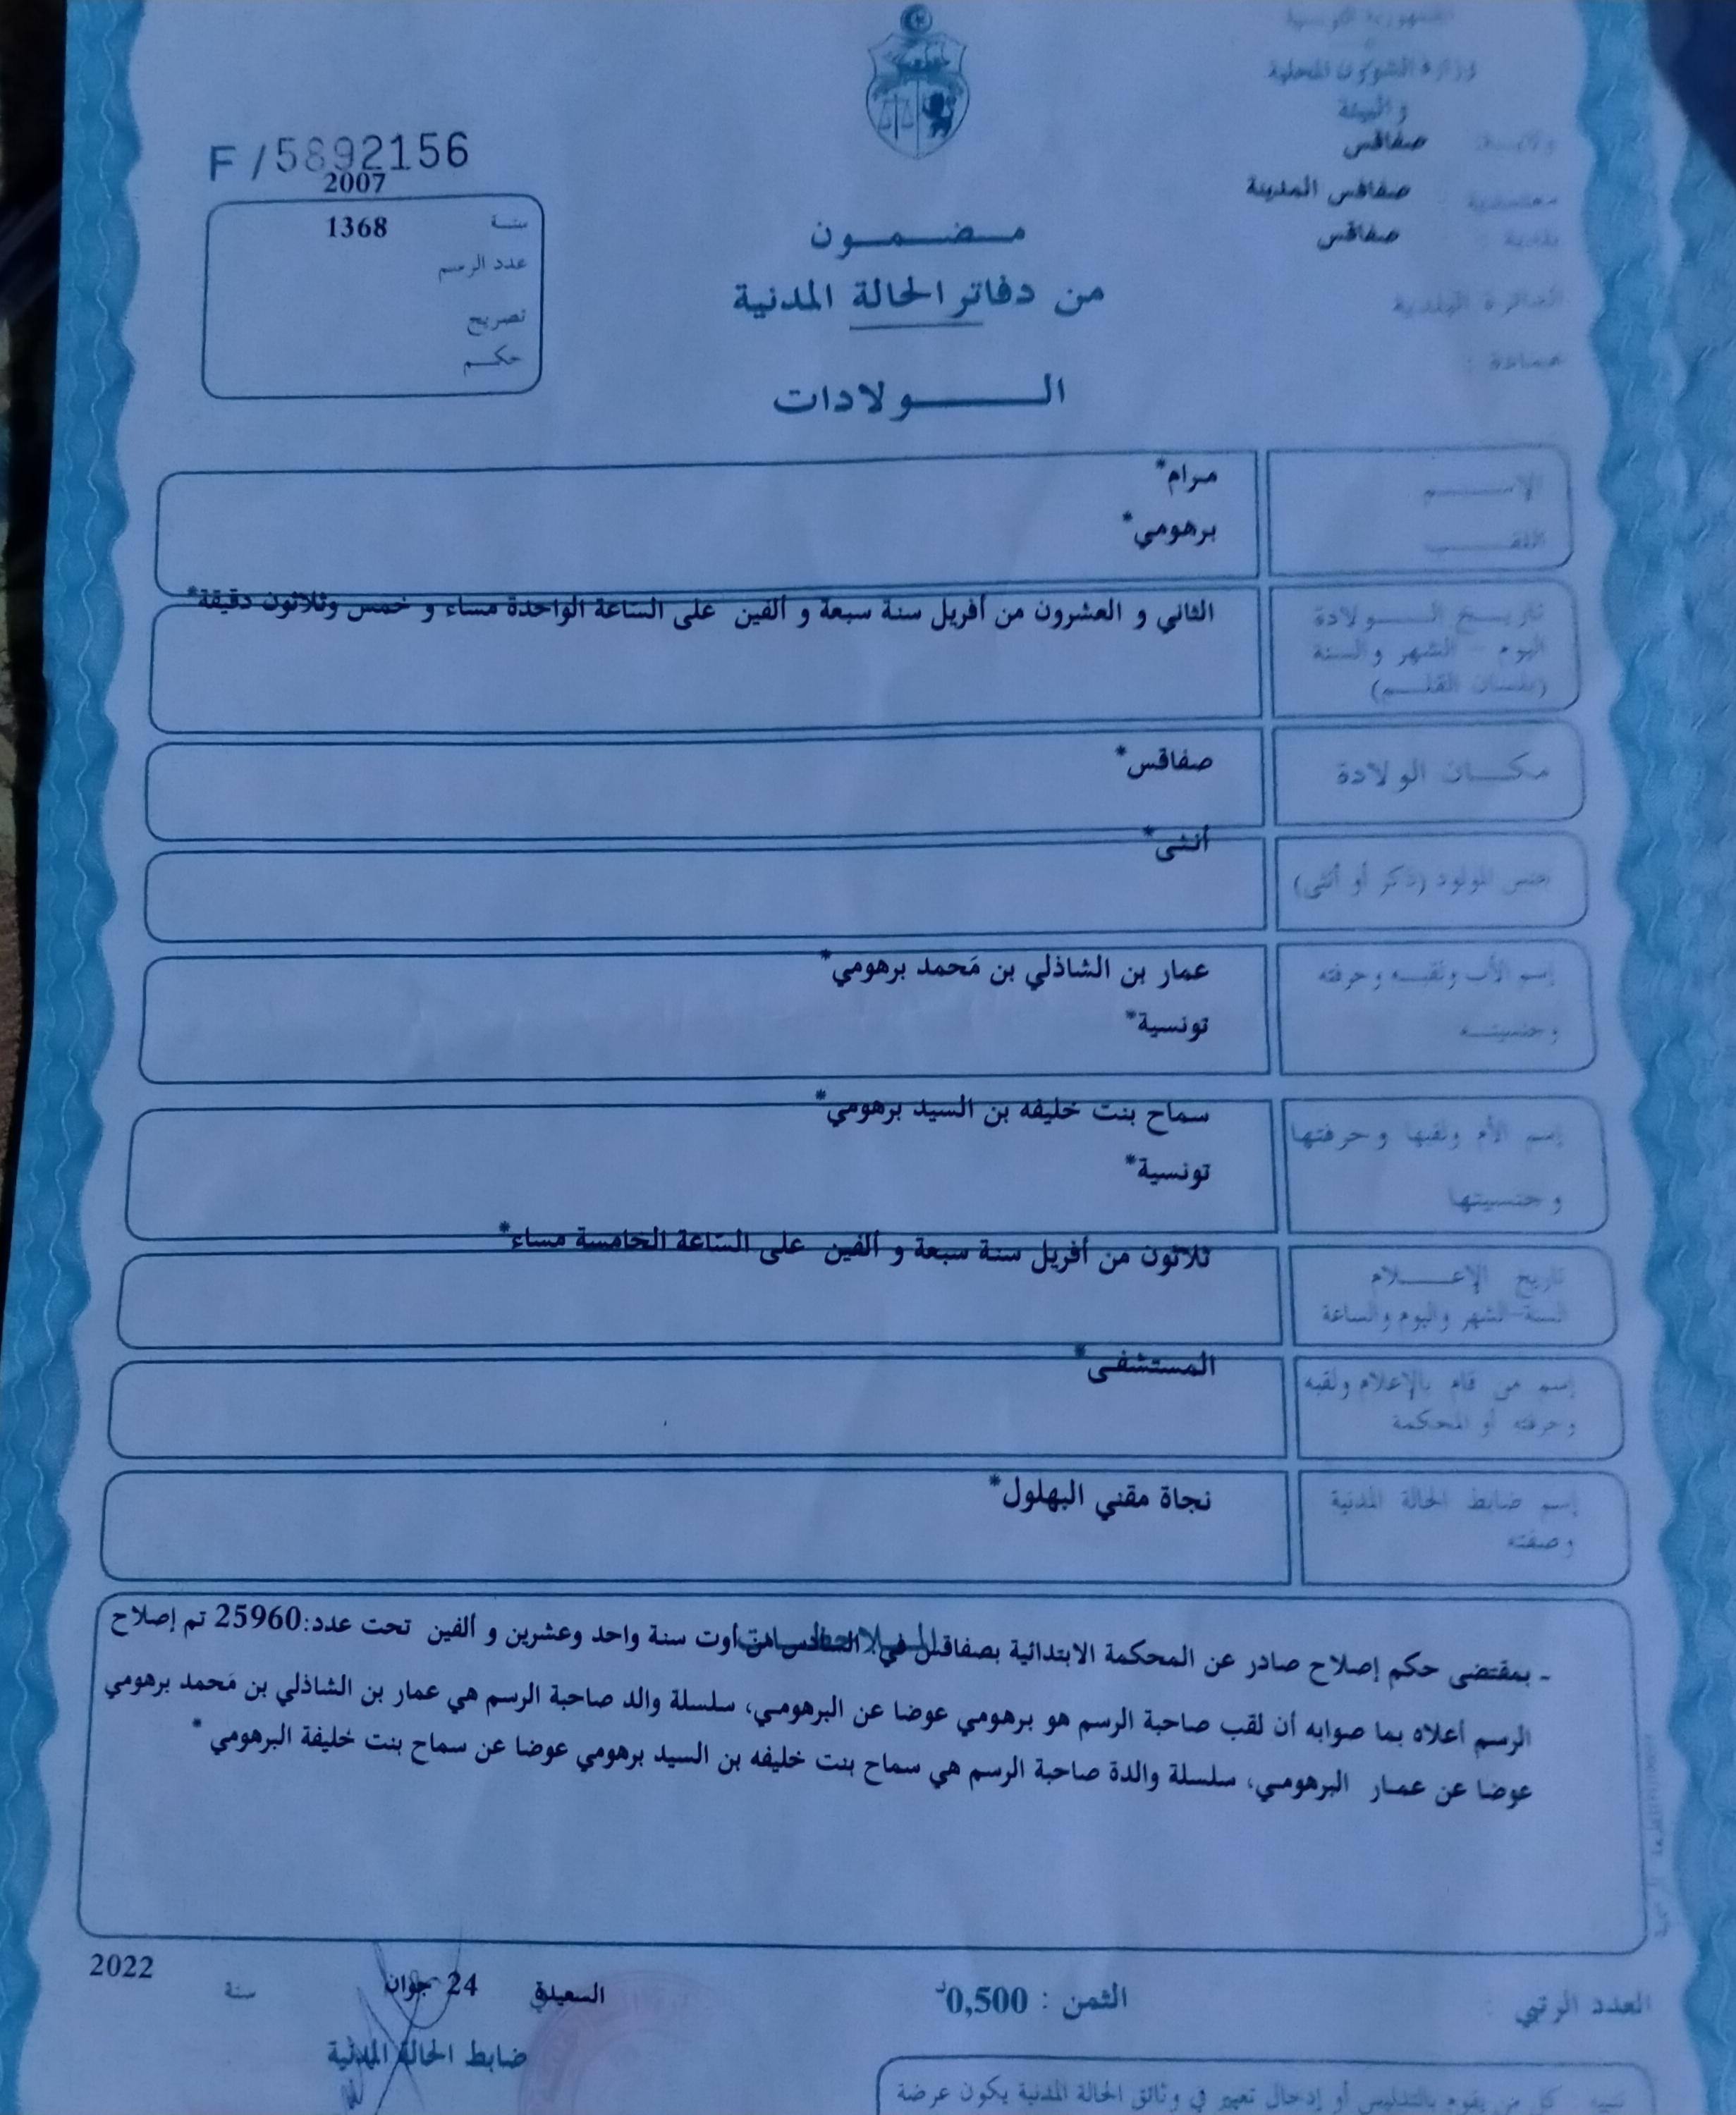 الجمهورية التونسية
وزارة الشؤون المحلية
و البيئة
ولايــة : صفاقس
معتمدية : صفاقس المدينة
بلدية : صفاقس
الدائرة البلدية
عمادة :
F / 5892156
2007
سنة 1368
عدد الرسم
تصريح
حكـم
مـضـمـون
من دفاتر الحالة المدنية
الـولادات
الإســـم مرام*
اللقـــب برهومي*
تاريـخ الـولادة الثاني و العشرون من أفريل سنة سبعة و ألفين على الساعة الواحدة مساء و خمس وثلاثون دقيقة*
اليوم - الشهر والسنة
(بلسان القلـم)
مكـان الولادة صفاقس*
جنس المولود (ذكر أو أنثى) أنثى*
إسم الأب ولقبـه وحرفته عمار بن الشاذلي بن مَحمد برهومي*
وجنسيتـه تونسية*
إسم الأم ولقبها وحرفتها سماح بنت خليفه بن السيد برهومي*
وجنسيتها تونسية*
تاريخ الإعـــلام ثلاثون من أفريل سنة سبعة و ألفين على الساعة الخامسة مساء*
السنة-الشهر واليوم والساعة
إسم من قام بالإعلام ولقبه المستشفى*
وحرفته أو المحكمة
إسم ضابط الحالة المدنية نجاة مقني البهلول*
وصفته
- بمقتضى حكم إصلاح صادر عن المحكمة الابتدائية بصفاقس في السادس من أوت سنة واحد وعشرين و ألفين تحت عدد:25960 تم إصلاح
الرسم أعلاه بما صوابه أن لقب صاحبة الرسم هو برهومي عوضا عن البرهومي، سلسلة والد صاحبة الرسم هي عمار بن الشاذلي بن مَحمد برهومي
عوضا عن عمار البرهومي، سلسلة والدة صاحبة الرسم هي سماح بنت خليفه بن السيد برهومي عوضا عن سماح بنت خليفة البرهومي *
العدد الرتبي : الثمن : 0,500د السعيدي 24 جوان سنة 2022
ضابط الحالة المدنية
تنبيه كل من يقوم بالتدليس أو إدخال تغيير في وثائق الحالة المدنية يكون عرضة